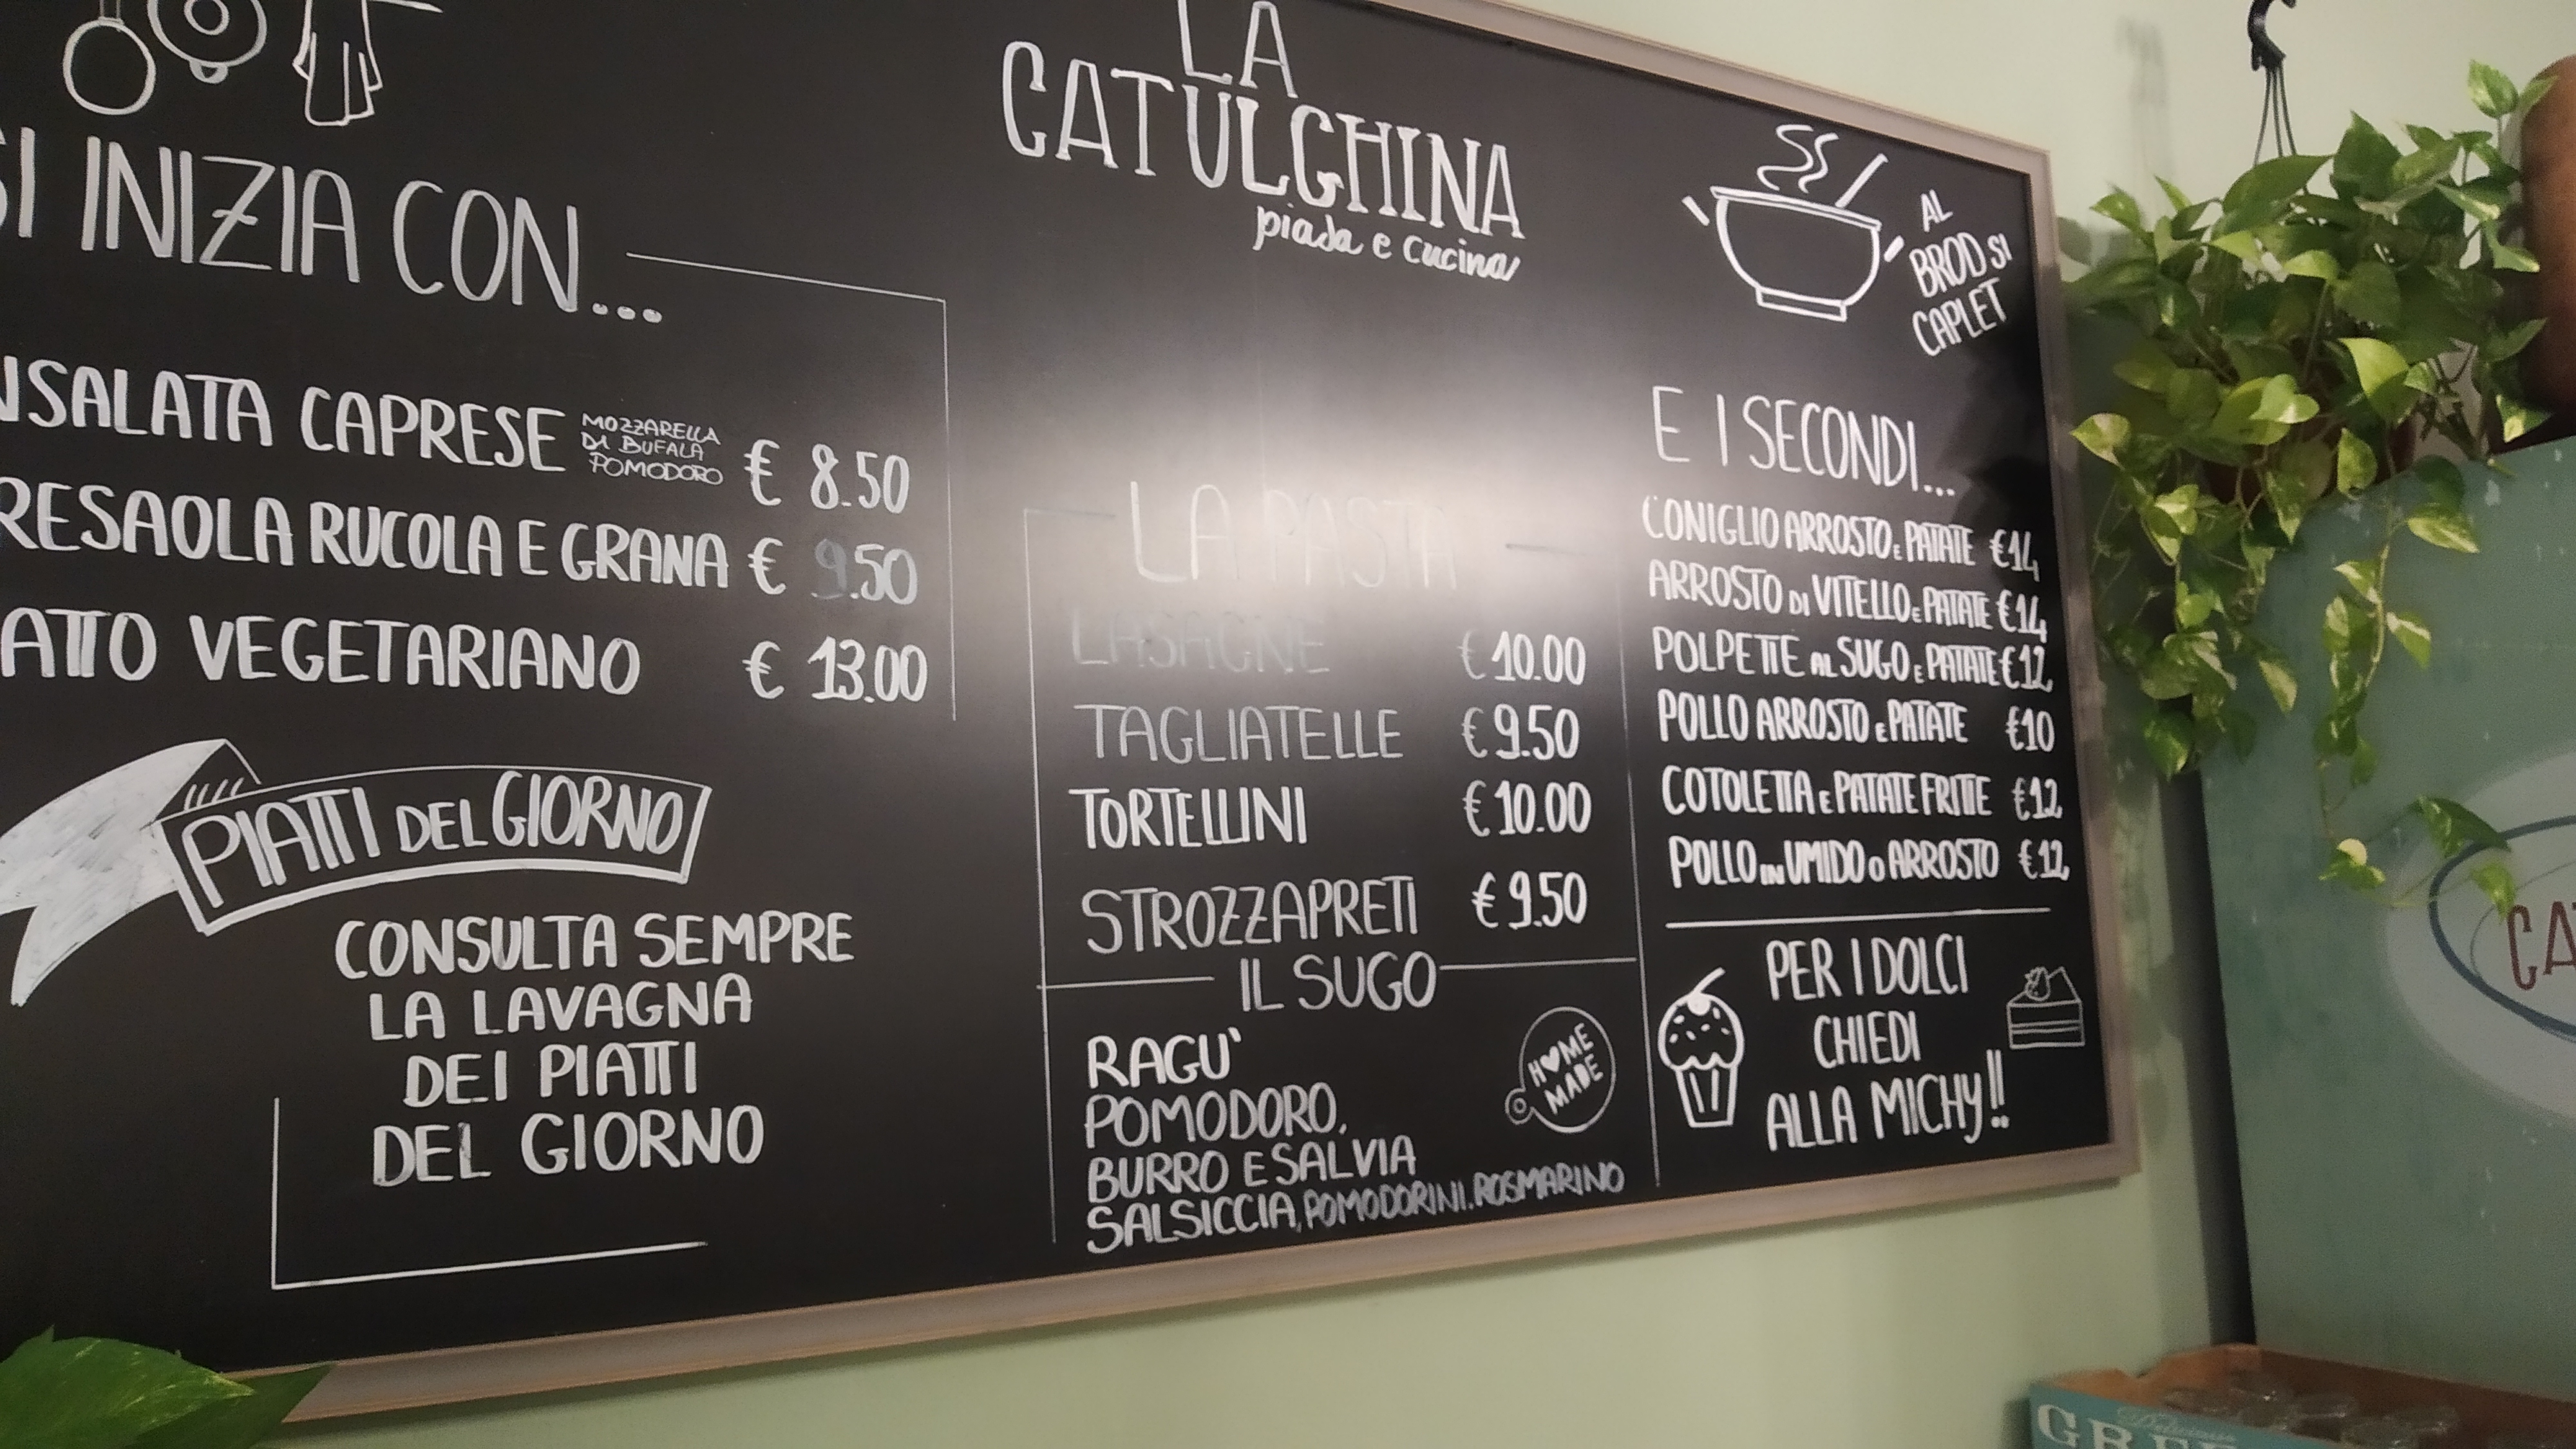 LA
CATULGHINA
piada e cucina
SI INIZIA CON...
NSALATA CAPRESE MOZZARELLA DI BUFALA POMODORO € 8.50
RESAOLA RUCOLA E GRANA € 9.50
ATTO VEGETARIANO € 13.00
PIATTI DEL GIORNO
CONSULTA SEMPRE
LA LAVAGNA
DEI PIATTI
DEL GIORNO
LA PASTA
LASAGNE € 10.00
TAGLIATELLE € 9.50
TORTELLINI € 10.00
STROZZAPRETI € 9.50
IL SUGO
RAGU'
POMODORO,
BURRO E SALVIA
SALSICCIA, POMODORINI. ROSMARINO
HOME
MADE
AL
BROD SI
CAPLET
E I SECONDI...
CONIGLIO ARROSTO E PATATE €14
ARROSTO DI VITELLO E PATATE €14
POLPETTE AL SUGO E PATATE €12
POLLO ARROSTO E PATATE €10
COTOLETTA E PATATE FRITTE €12
POLLO IN UMIDO O ARROSTO €12
PER I DOLCI
CHIEDI
ALLA MICHY!!
CA